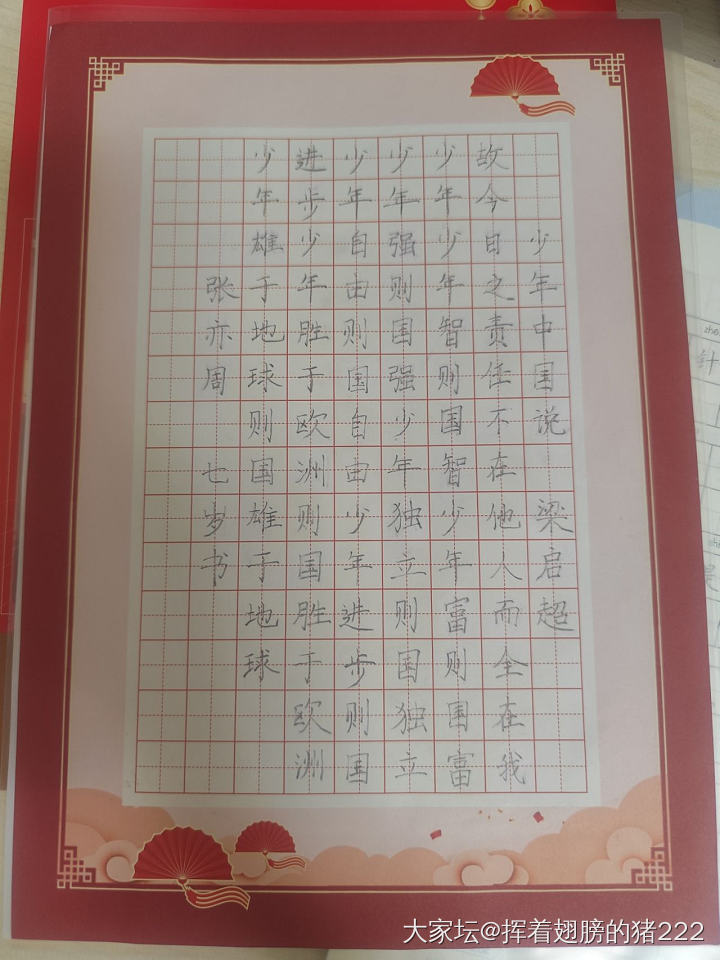 少年中国说 梁启超
故今日之责任不在他人而全在我
少年少年智则国智少年富则国富
少年强则国强少年独立则国独立
少年自由则国自由少年进步则国
进步少年胜于欧洲则国胜于欧洲
少年雄于地球则国雄于地球
张亦周 七岁书
针
是
大家坛@挥着翅膀的猪222